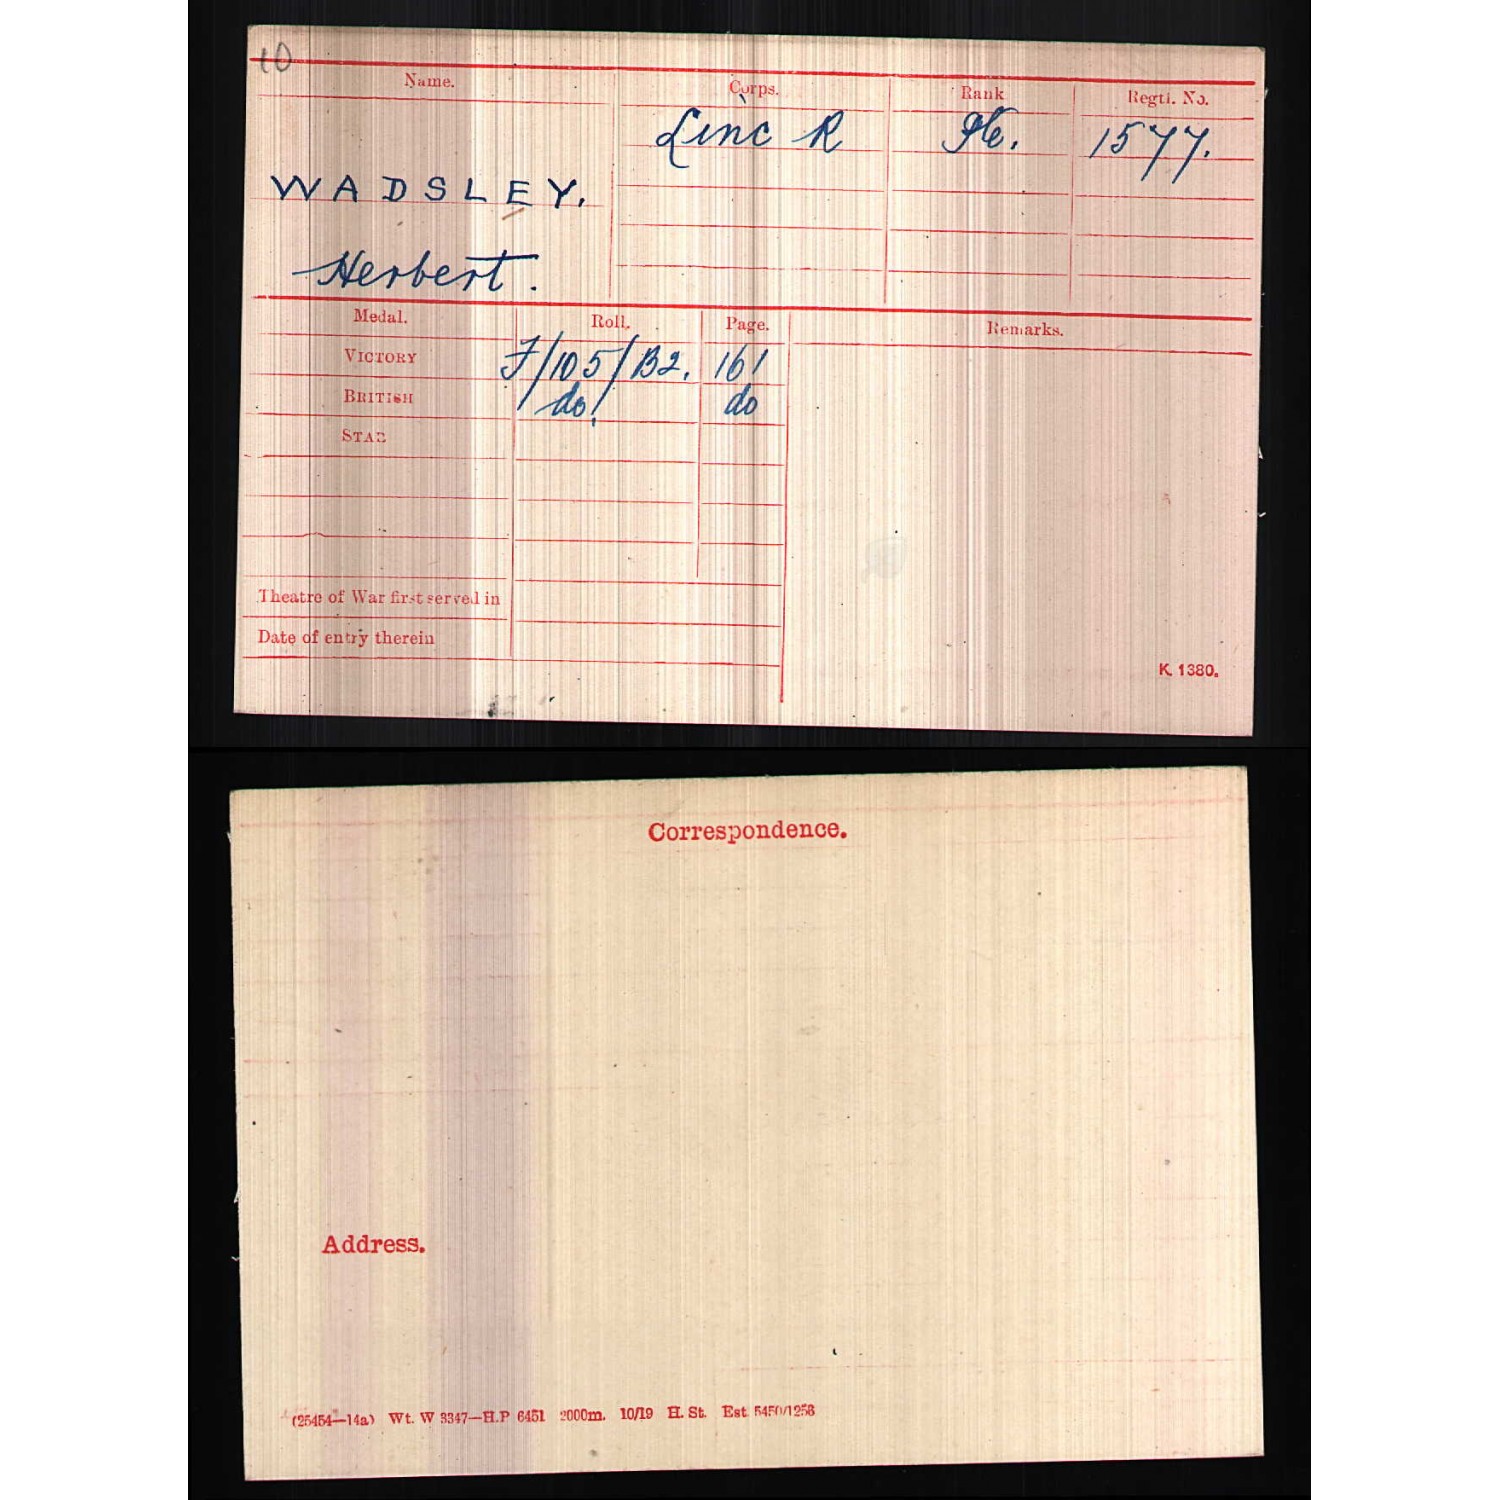 10
Name.
Corps.
Rank
Regtl. No.
Linc R
Pte.
1577.
WADSLEY.
Herbert.
Medal.
Roll.
Page.
Remarks.
VICTORY
F/105/B2.
161
BRITISH
do
do
STAR
Theatre of War first served in
Date of entry therein
K. 1380.
Correspondence.
Address.
(25454—14a) Wt. W 3347—H.P 6451 2000m. 10/19 H. St. Est. 5450/1258